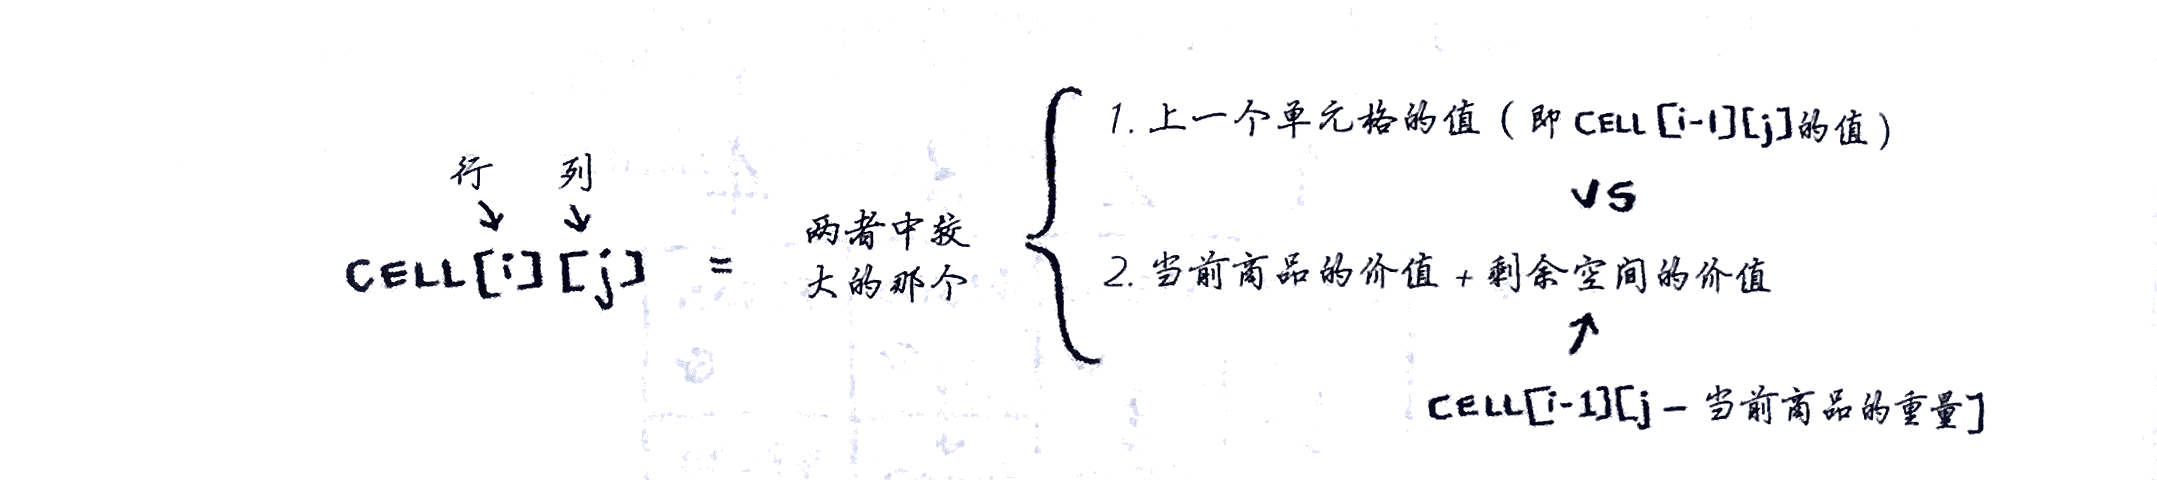 行 列
CELL[i][j] = 两者中较
大的那个
1. 上一个单元格的值（即 CELL[i-1][j]的值）
VS
2. 当前商品的价值 + 剩余空间的价值
CELL[i-1][j - 当前商品的重量]